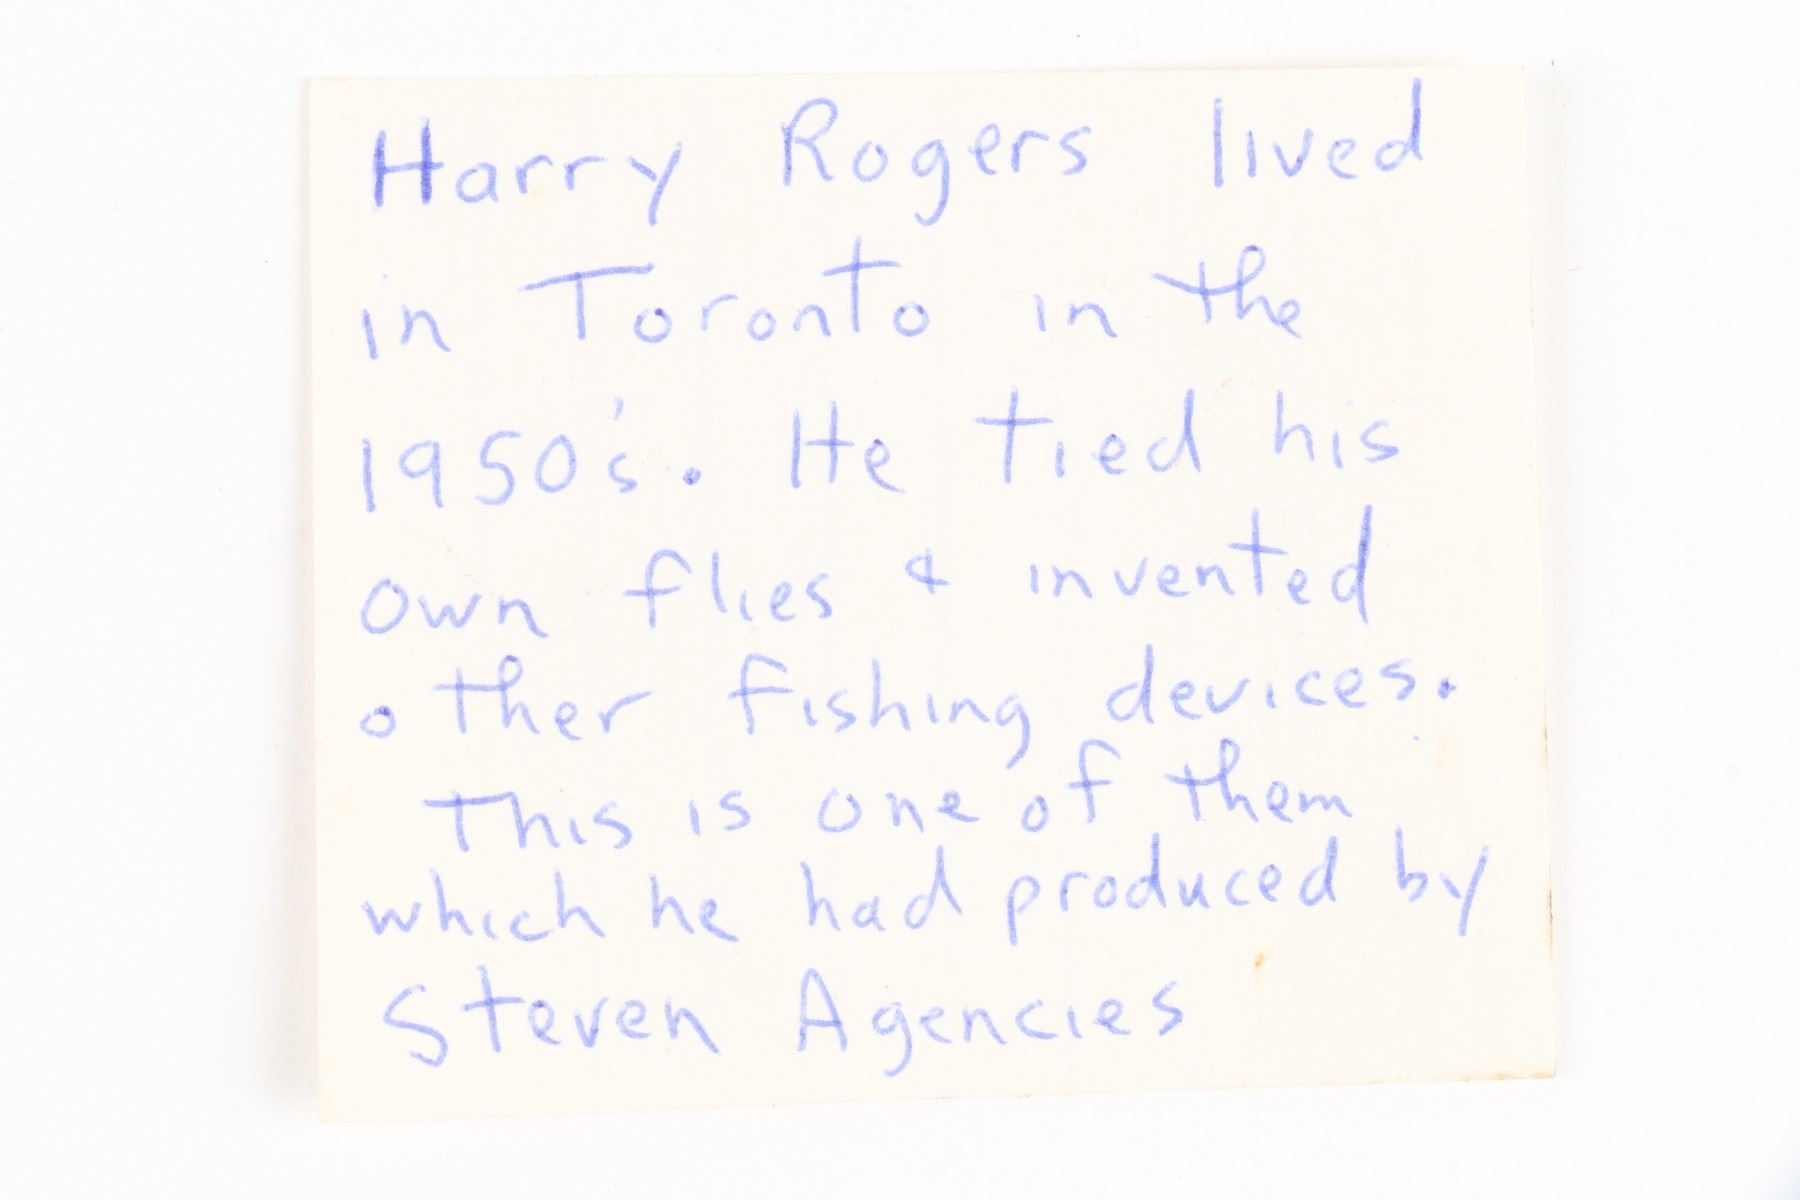 Harry Rogers lived
in Toronto in the
1950's. He tied his
own flies & invented
other fishing devices.
This is one of them
which he had produced by
Steven Agencies